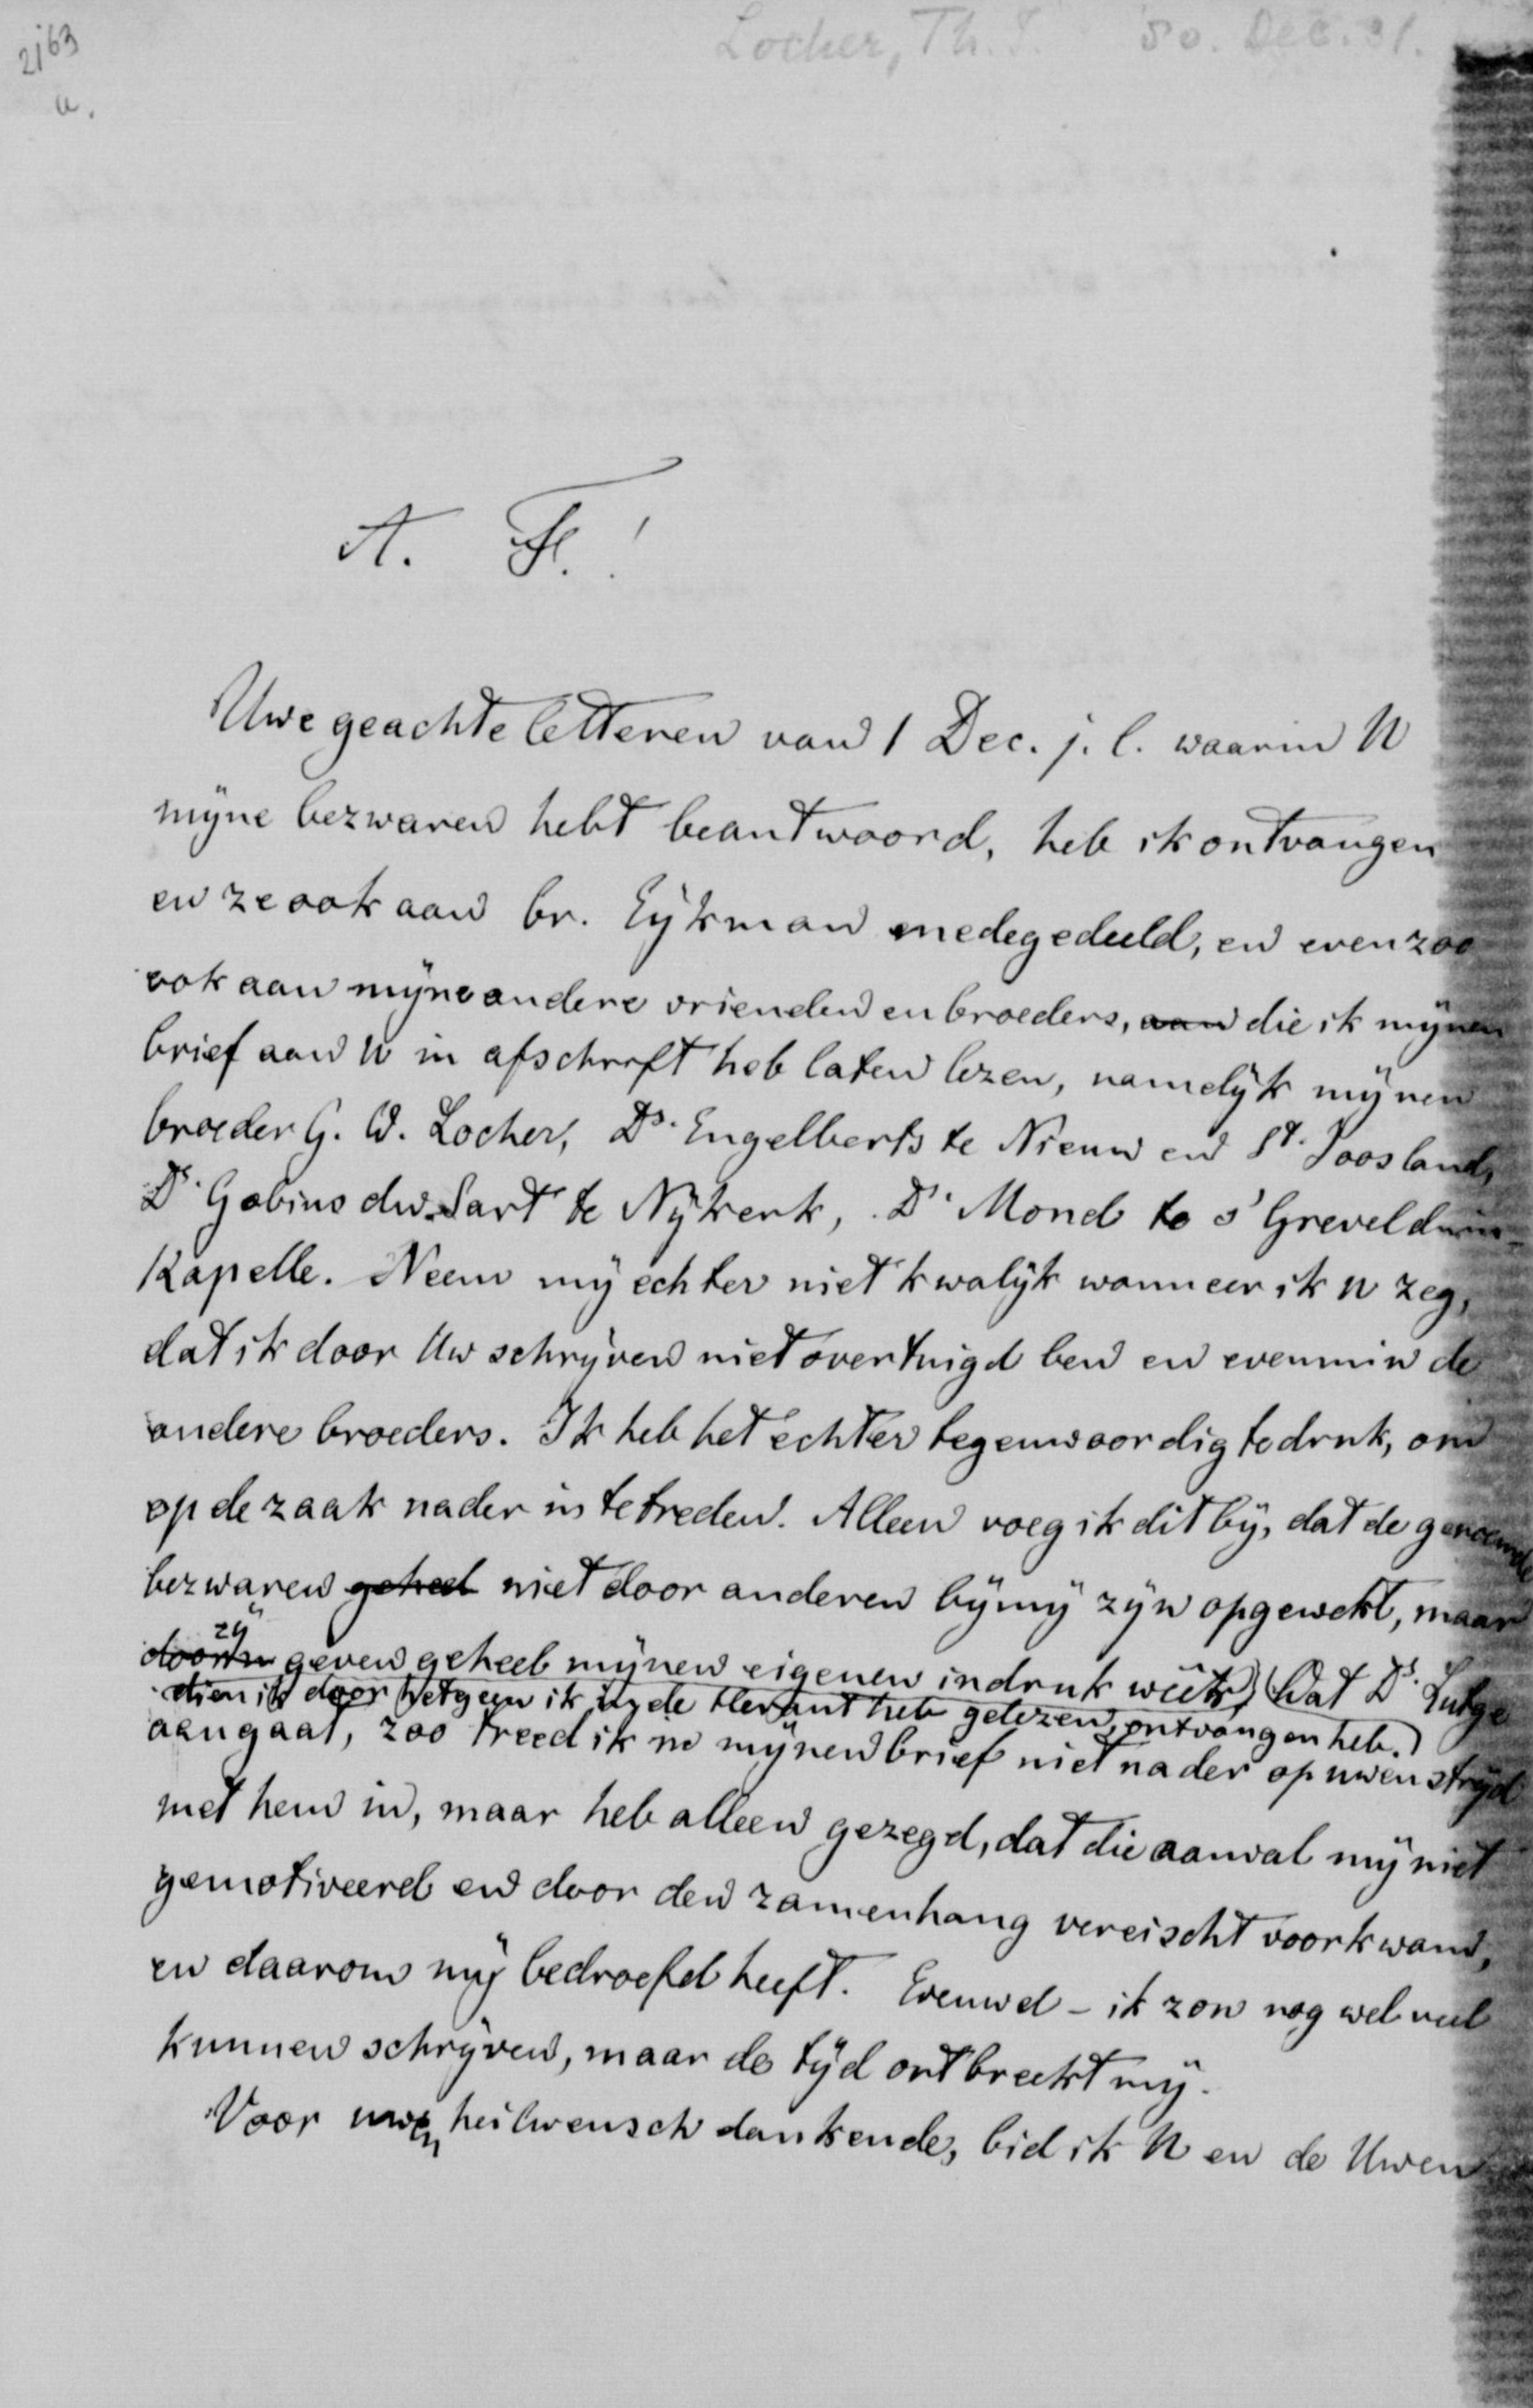 2j63
a.
Locher, Th. J. 30. Dec. 81.
A. F.!
Uwe geachte letteren van 1 Dec. j.l. waarin U
mijne bezwaren hebt beantwoord, heb ik ontvangen
en ze ook aan br. Eijkman medegedeeld, en even zoo
ook aan mijne andere vrienden en broeders, aan die ik mijnen
brief aan U in afschrift heb laten lezen, namelijk mijnen
broeder G. W. Locher, Ds. Engelberts te Nieuw en St. Joosland,
Ds. Gobius du Sart te Nijkerk, Ds. Mond te s' Grevelduin-
Kapelle. Neem mij echter niet kwalijk wanneer ik U zeg,
dat ik door Uw schrijven niet overtuigd ben en evenmin de
andere broeders. Ik heb het echter tegenwoordig te druk, om
op de zaak nader in te treden. Alleen voeg ik dit bij, dat de genoemde
bezwaren geheel niet door anderen bij mij zijn opgewekt, maar
zij
geven geheel mijnen eigenen indruk weer, (Wat Ds. Lütge
dien ik door hetgeen ik in de Heraut heb gelezen, ontvangen heb.)
aangaat, zoo treed ik in mijnen brief niet nader op uwen strijd
met hem in, maar heb alleen gezegd, dat die aanval mij niet
gemotiveerd en door den zamenhang vereischt voorkwam,
en daarom mij bedroefd heeft. Evenwel - ik zou nog wel veel
kunnen schrijven, maar de tijd ontbreekt mij.
Voor uwen heilwensch dankende, bid ik U en de Uwen